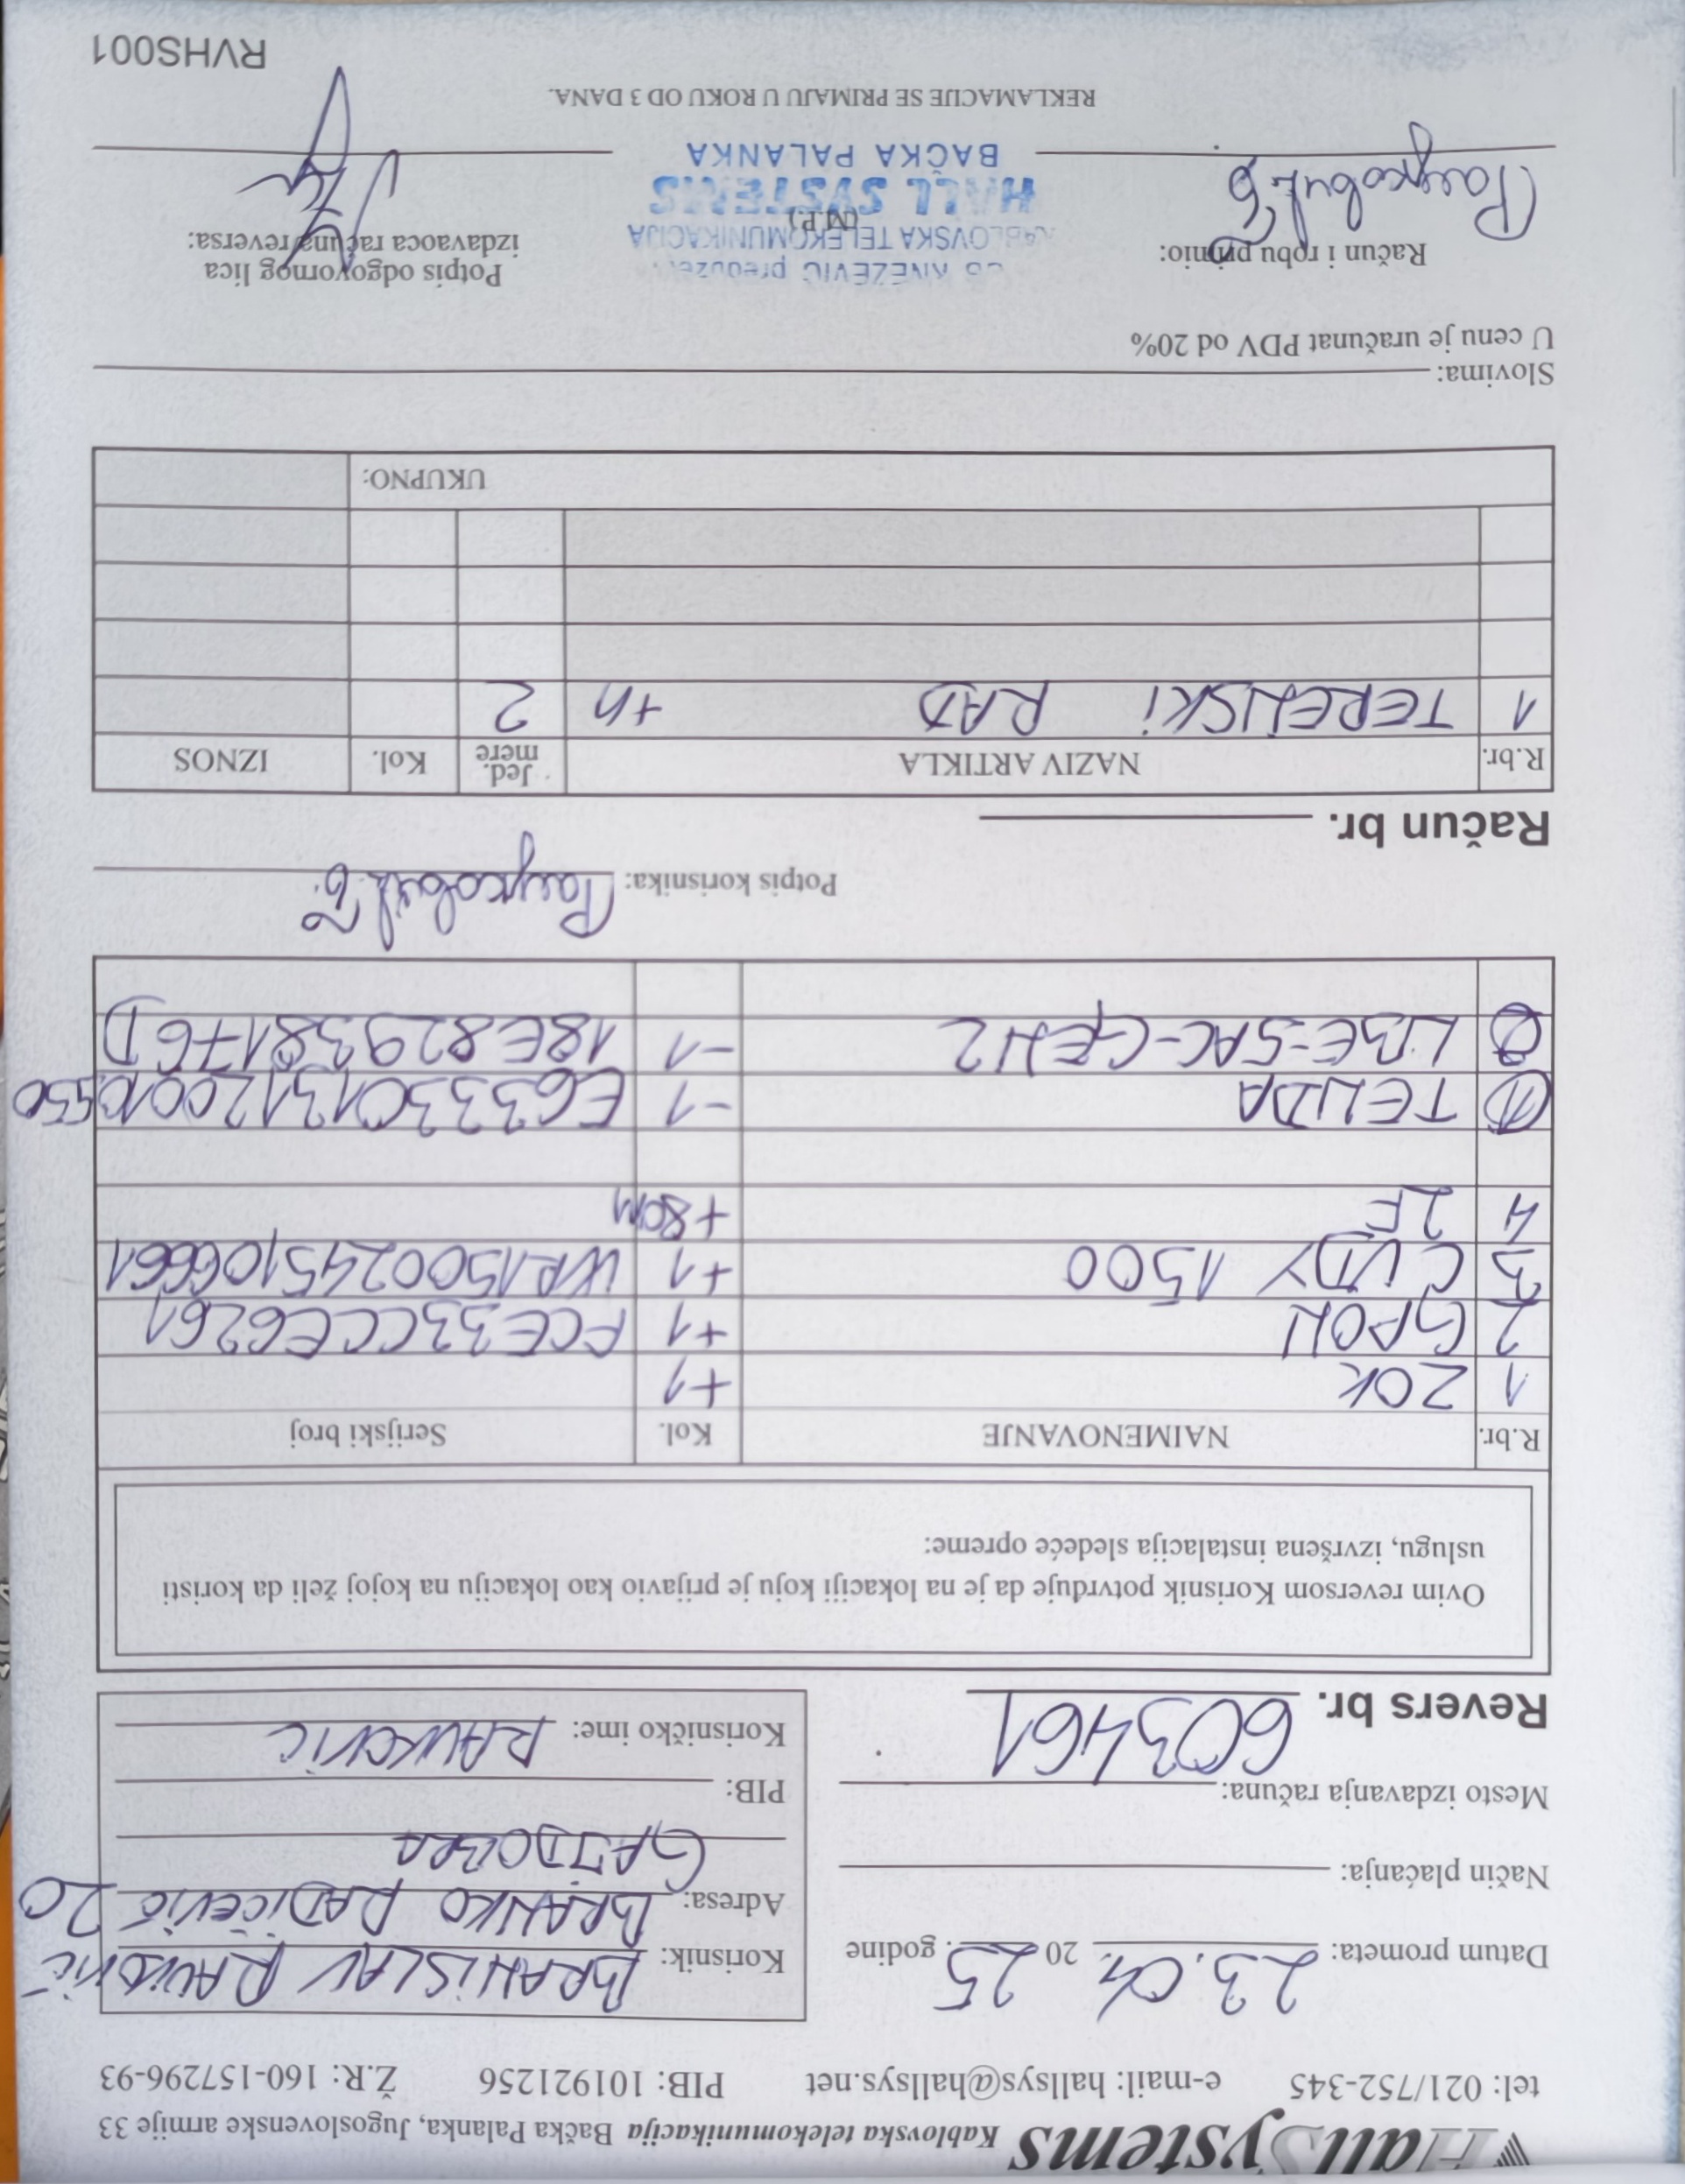 HallSystems Kablovska telekomunikacija Bačka Palanka, Jugoslovenske armije 33
tel: 021/752-345 e-mail: hallsys@hallsys.net PIB: 101921256 Ž.R: 160-157296-93
Datum prometa: 23.04. 20 25. godine
Način plaćanja:
Mesto izdavanja računa:
Revers br. 603461
Korisnik: BRANISLAV RAUKOVIĆ
Adresa: BRANKO RADIČEVIĆ 20
GAJDOBRA
PIB:
Korisničko ime: RAUKOVIC
Ovim reversom Korisnik potvrđuje da je na lokaciji koju je prijavio kao lokaciju na kojoj želi da koristi
uslugu, izvršena instalacija sledeće opreme:
R.br. NAIMENOVANJE Kol. Serijski broj
1 ZOK +1
2 GPON +1 FCE33CCE6261
3 CUDY 1500 +1 WR15002451066661
4 2F +80m
1 TENDA -1 E6333013120010550
2 LBE-5AC-GEN2 -1 18E82938176D
Potpis korisnika: Рауковић Б.
Račun br.
R.br. NAZIV ARTIKLA Jed. mere Kol. IZNOS
1 TERENSKI RAD +h 2
UKUPNO:
Slovima:
U cenu je uračunat PDV od 20%
Račun i robu primio:
Рауковић Б
KNEŽEVIĆ preduzeće
KABLOVSKA TELEKOMUNIKACIJA
(M.P.)
HALL SYSTEMS
BAČKA PALANKA
Potpis odgovornog lica
izdavaoca računa/reversa:
REKLAMACIJE SE PRIMAJU U ROKU OD 3 DANA.
RVHS001